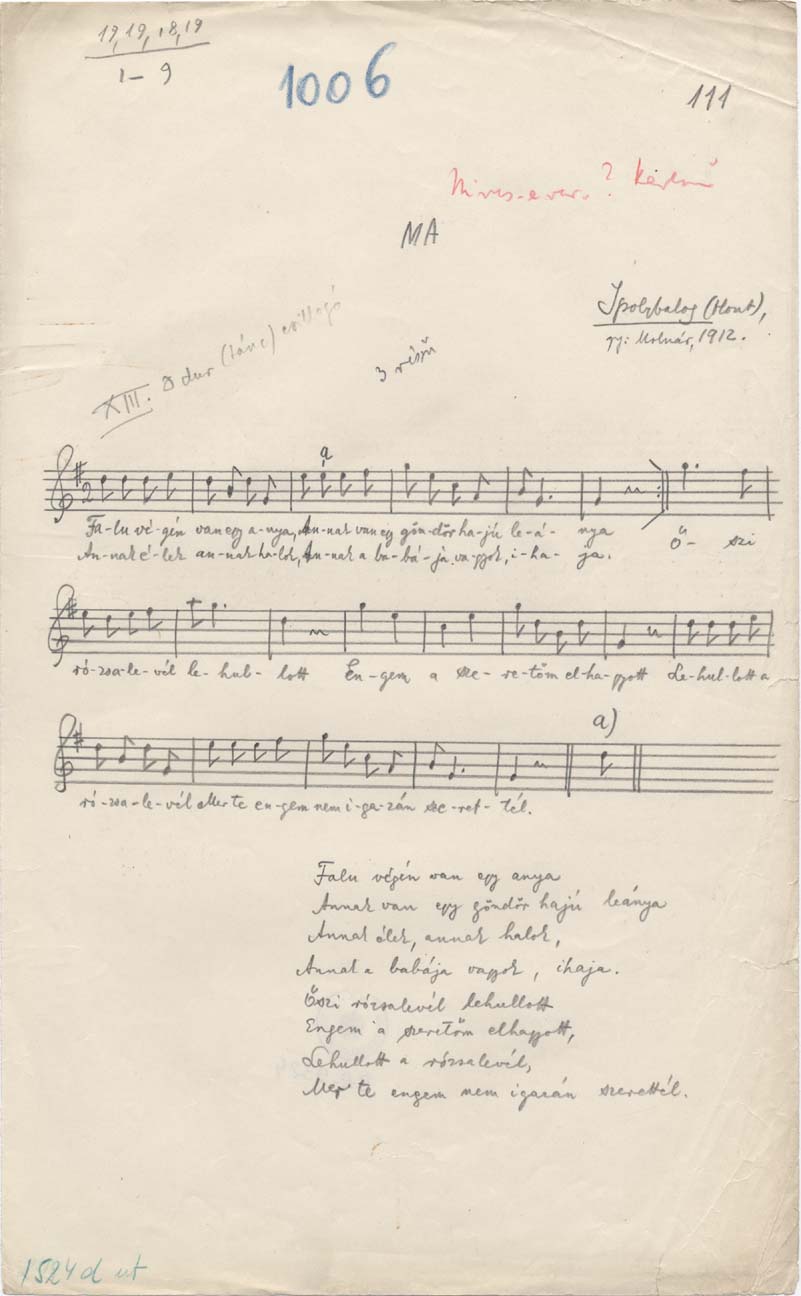 19, 19, 18, 19
1 – 9
1006
111
MA
Ipolybalog (Hont),
gy: Molnár, 1912.
XIII. dur (tánc) csillogó
3 részű
a
Fa-lu vé-gén van egy a-nya, An-nak van egy gön-dör ha-jú le-á-nya Ő-szi
An-nak é-lek an-nak ha-lok, An-nak a ba-bá-ja va-gyok, i-ha-ja.
ró-zsa-le-vél le-hul-lott En-gem a sze-re-tőm el-ha-gyott Le-hul-lott a
a)
ró-zsa-le-vél Mer te en-gem nem i-ga-zán sze-ret-tél.
Falu végén van egy anya
Annak van egy göndör hajú leánya
Annak élek, annak halok,
Annak a babája vagyok, ihaja.
Őszi rózsalevél lehullott
Engem a szeretőm elhagyott,
Lehullott a rózsalevél,
Mer te engem nem igazán szerettél.
1524 d ut